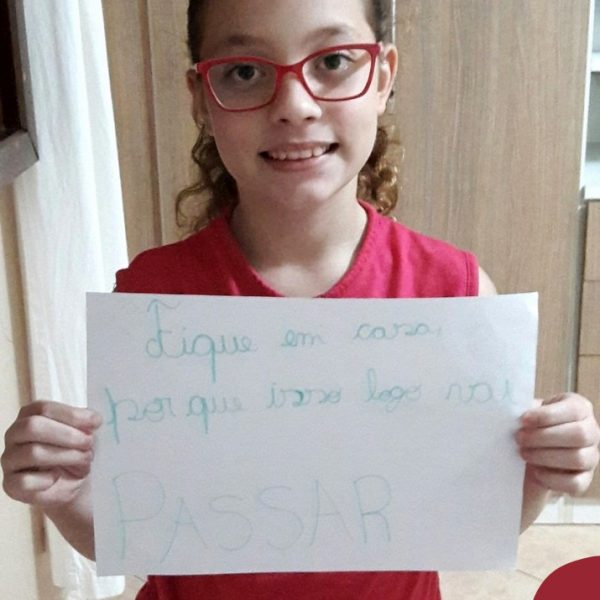 Fique em casa,
porque isso logo vai
PASSAR